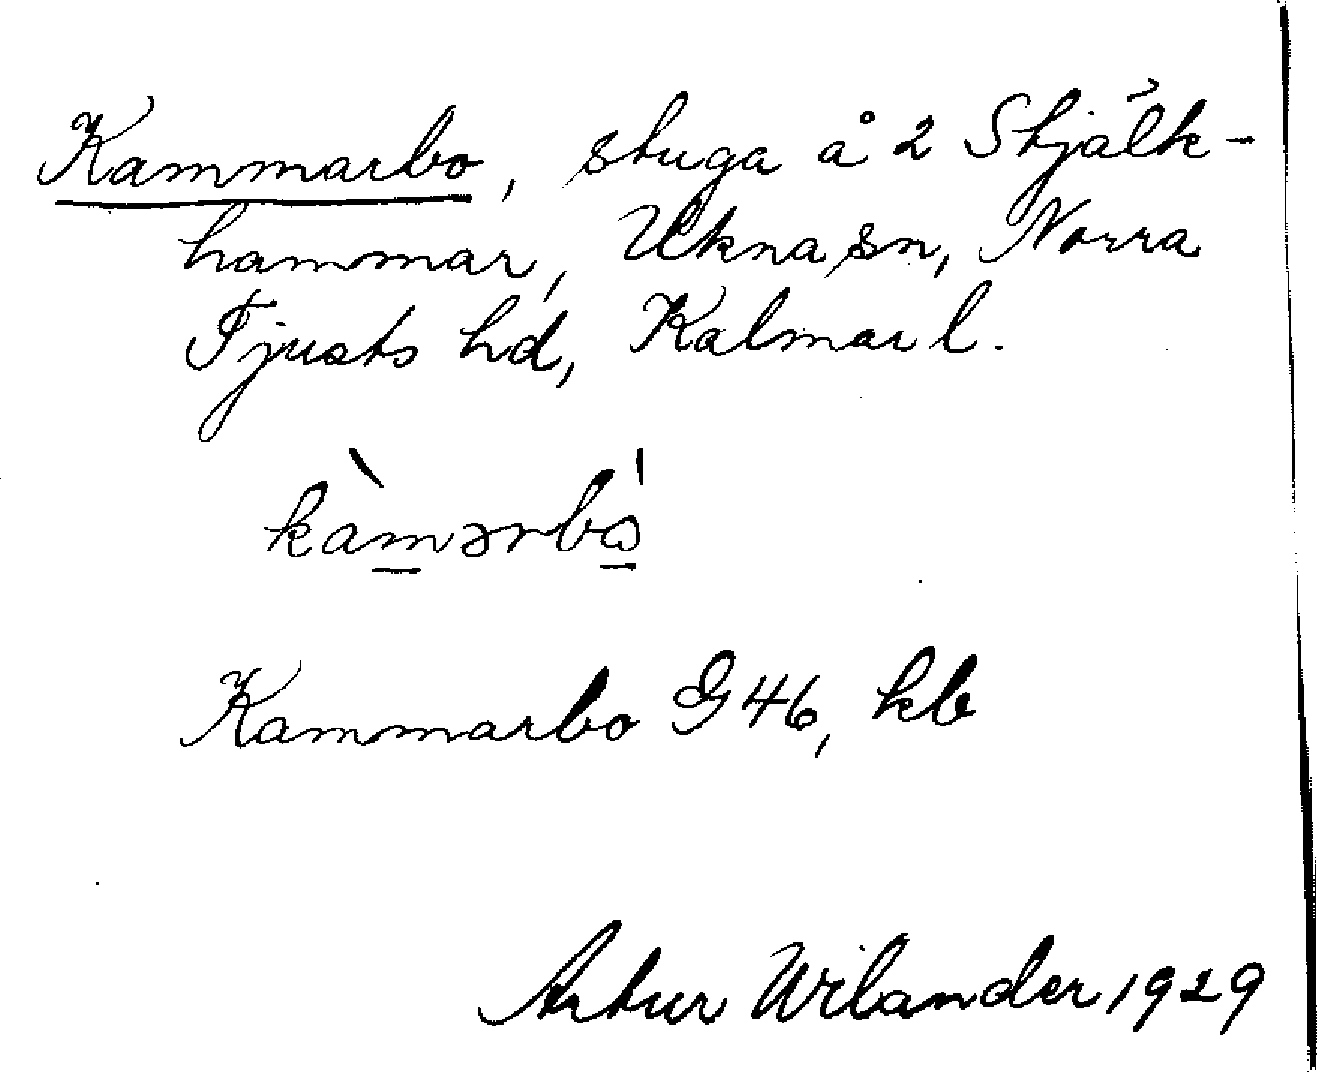 Kammarbo, stuga å 2 Stjälk-
hammar, Ukna sn, Norra
Tjusts hd, Kalmar l.
kàmərbó
Kammarbo G 46, kb
Artur Wilander 1929